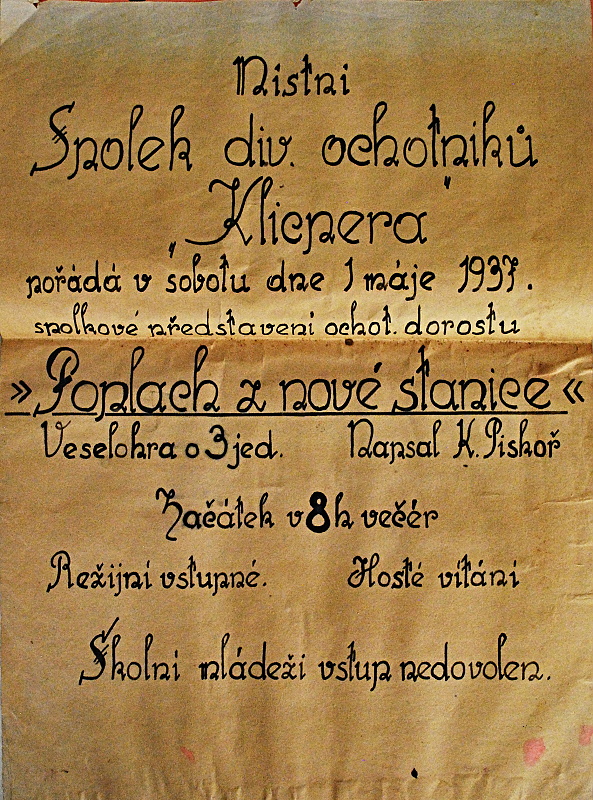 Místní
Spolek div. ochotníků
„Klicpera"
pořádá v sobotu dne 1 máje 1937.
spolkové představení ochot. dorostu
»Poplach z nové stanice«
Veselohra o 3 jed. Napsal K. Piskoř
Začátek v 8 h večér
Režijní vstupné. Hosté vítáni
Školní mládeži vstup nedovolen.